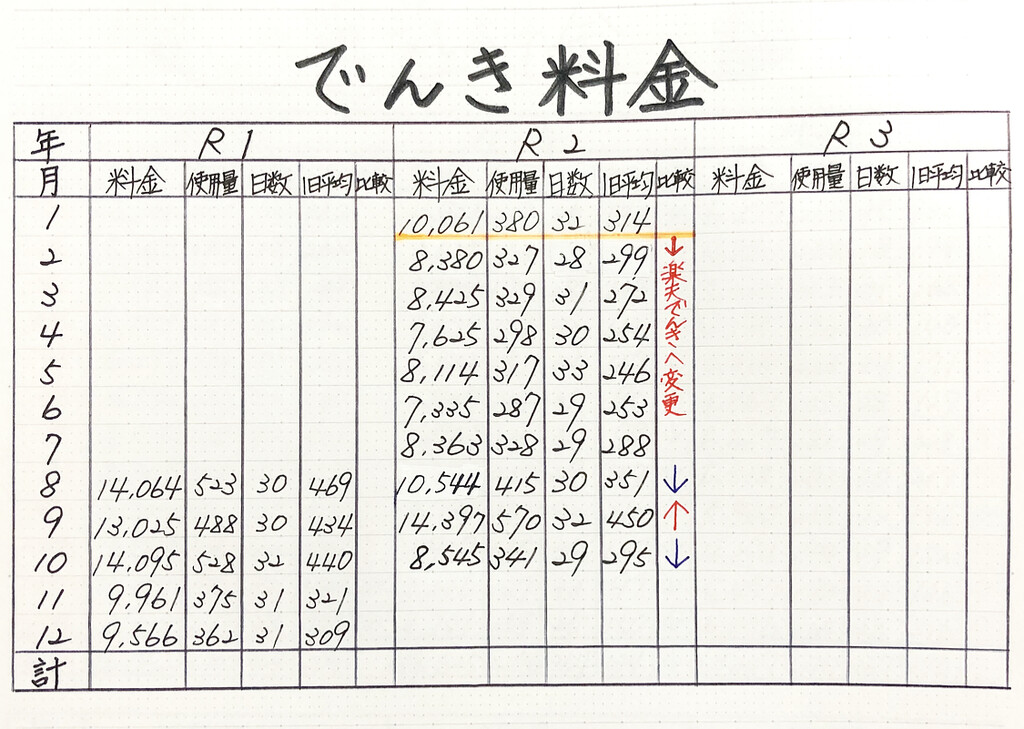 でんき料金
年 R1 R2 R3
月 料金 使用量 日数 1日平均 比較 料金 使用量 日数 1日平均 比較 料金 使用量 日数 1日平均 比較
1 10,061 380 32 314
2 8,380 327 28 299 ↓楽天でんきへ変更
3 8,425 329 31 272
4 7,625 298 30 254
5 8,114 317 33 246
6 7,335 287 29 253
7 8,363 328 29 288
8 14,064 523 30 469 10,544 415 30 351 ↓
9 13,025 488 30 434 14,397 570 32 450 ↑
10 14,095 528 32 440 8,545 341 29 295 ↓
11 9,961 375 31 321
12 9,566 362 31 309
計